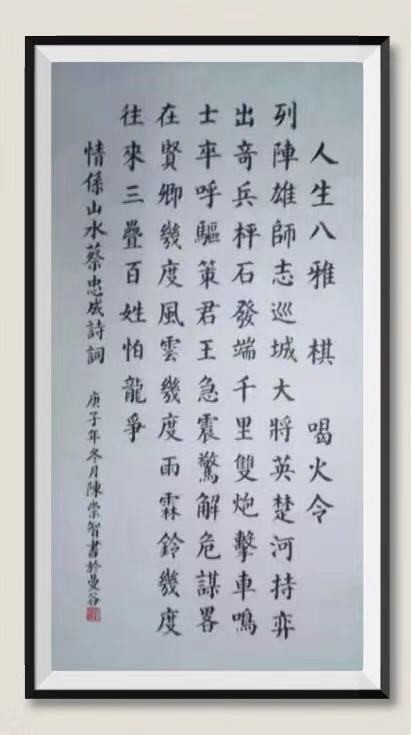 人生八雅 棋 喝火令
列陣雄師志巡城大將英楚河持弈
出奇兵枰石發端千里雙炮擊車鳴
士率呼驅策君王急震驚解危謀畧
在賢卿幾度風雲幾度雨霖鈴幾度
往來三疊百姓怕龍爭
情係山水蔡忠成詩詞 庚子年冬月陳崇智書於曼谷